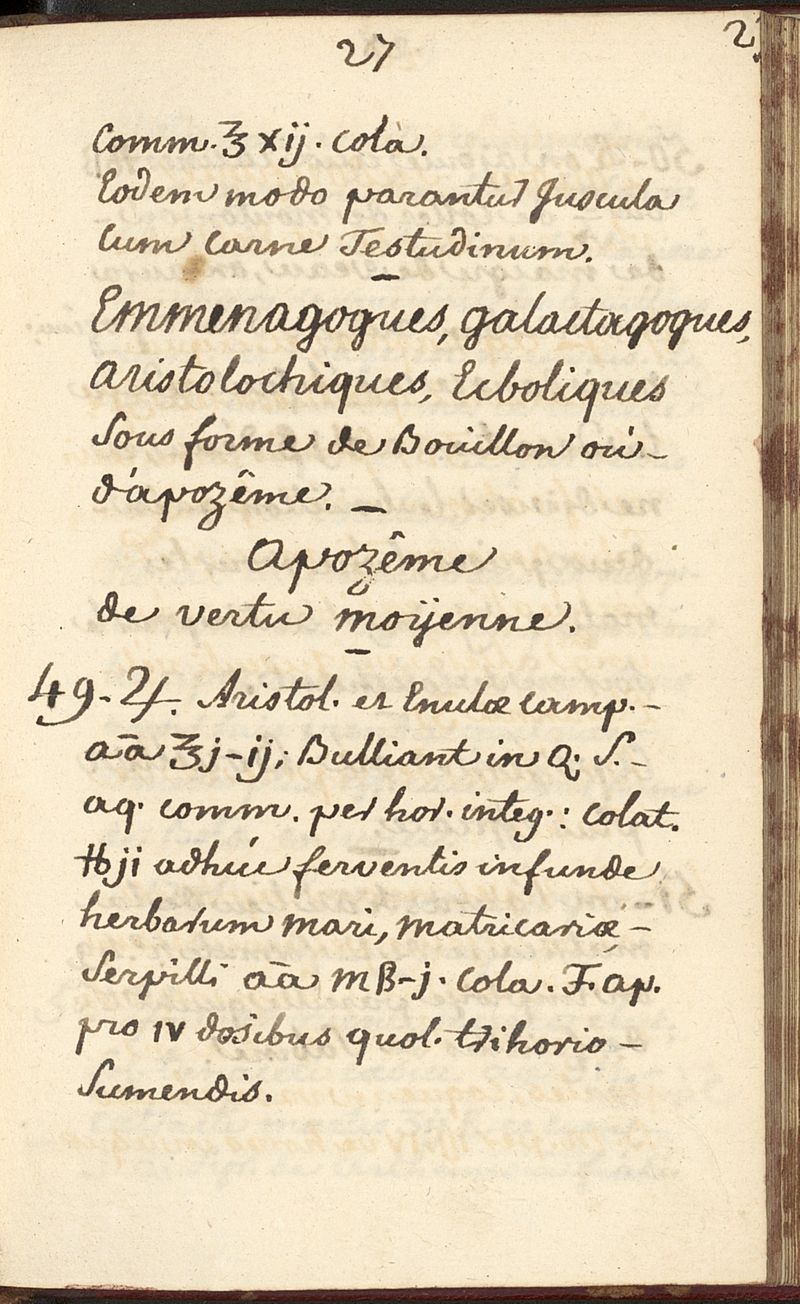 27
2
Comm. ℥ xij. cola.
Eodem modo parantur Juscula
Cum Carne Testudinum.
Emmenagogues, galactagogues,
aristolochiques, Ecboliques
Sous forme de Bouillon où
d'apozême.
Apozême
de vertu moÿenne.
49. ♃. Aristol. et Enulæ camp.
aā ℥j-ij; Bulliant in Q. S.
aq. comm. per hor. integ.: Colat.
℔ji adhúc ferventis infunde
herbarum mari, matricariæ
Serpilli aā mß-j. Cola. F. ap.
pro IV dosibus quol. trihorio
Sumendis.